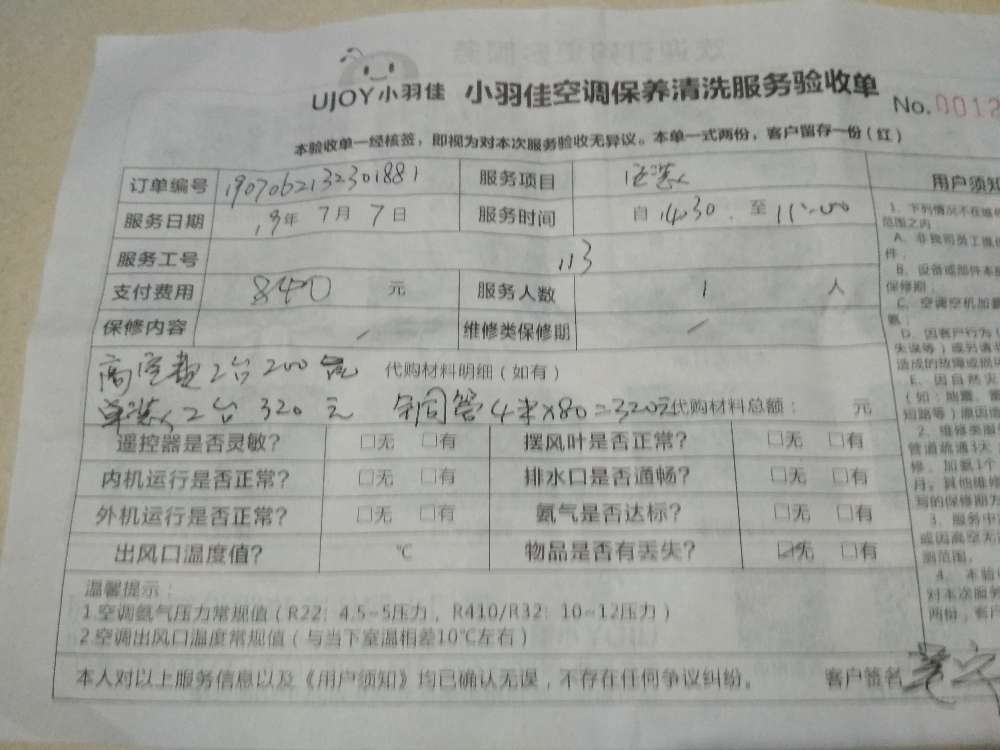 UJOY小羽佳 小羽佳空调保养清洗服务验收单 No.0012
本验收单一经核签，即视为对本次服务验收无异议。本单一式两份，客户留存一份（红）
订单编号 1907062132301881 服务项目
服务日期 19年 7月 7日 服务时间 自 至
服务工号 113
支付费用 840 元 服务人数 1 人
保修内容 / 维修类保修期 /
高空费2台200元 代购材料明细（如有）
单装2台320元 铜管4米×80=320元 代购材料总额： 元
遥控器是否灵敏？ □无 □有 摆风叶是否正常？ □无 □有
内机运行是否正常？ □无 □有 排水口是否通畅？ □无 □有
外机运行是否正常？ □无 □有 氨气是否达标？ □无 □有
出风口温度值？ ℃ 物品是否有丢失？ ☑无 □有
温馨提示：
1.空调氨气压力常规值（R22：4.5~5压力，R410/R32：10~12压力）
2.空调出风口温度常规值（与当下室温相差10℃左右）
本人对以上服务信息以及《用户须知》均已确认无误，不存在任何争议纠纷。 客户签名
用户须知
1、下列情况不在维
范围之内：
A、非我司员工
件；
B、设备或部件
保修期；
C、空调空机加
氨；
D、因客户行为
失误等）或另请
造成的故障或损
E、因自然灾
（如：
短路等）原因
2、维修类服
管道疏通3天
修、加氨1个
月。其他维修
写的保修期为
3、服务中
或因高空无
测范围。
4、本验
对本次服务
两份，客户